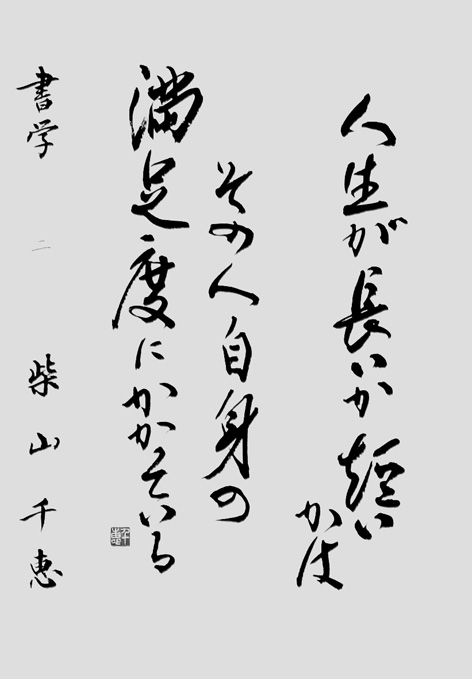 人生が長いか短い
かは
その人自身の
満足度にかかっている
書学 二 柴山千恵